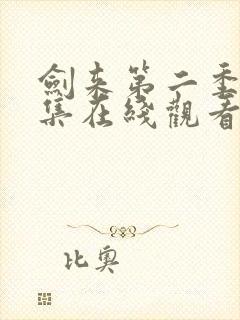 劍来第二季
集在綫觀看
比奥